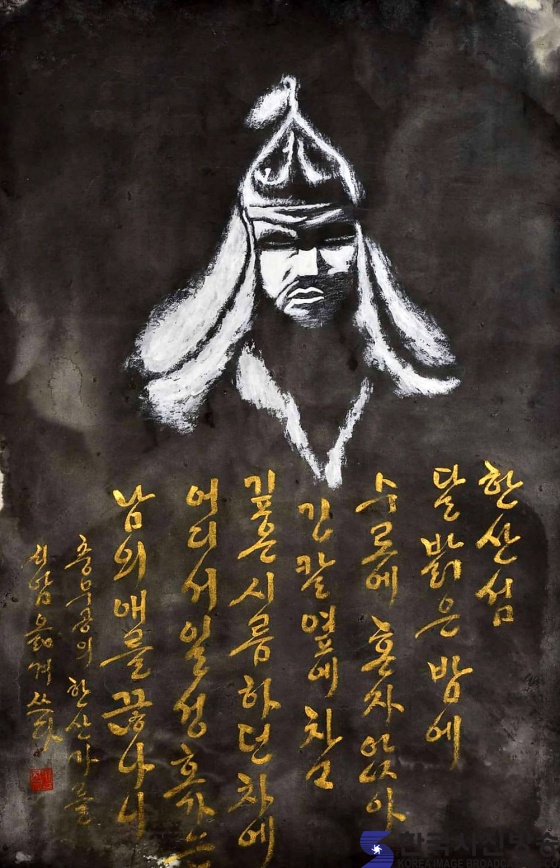 한산섬
달 밝은 밤에
수루에 혼자 앉아
긴 칼 옆에 차고
깊은 시름 하던 차에
어디서 일성호가는
남의 애를 끊나니
충무공의 한산가를
옮겨 쓰다
KOREA IMAGE BROADC